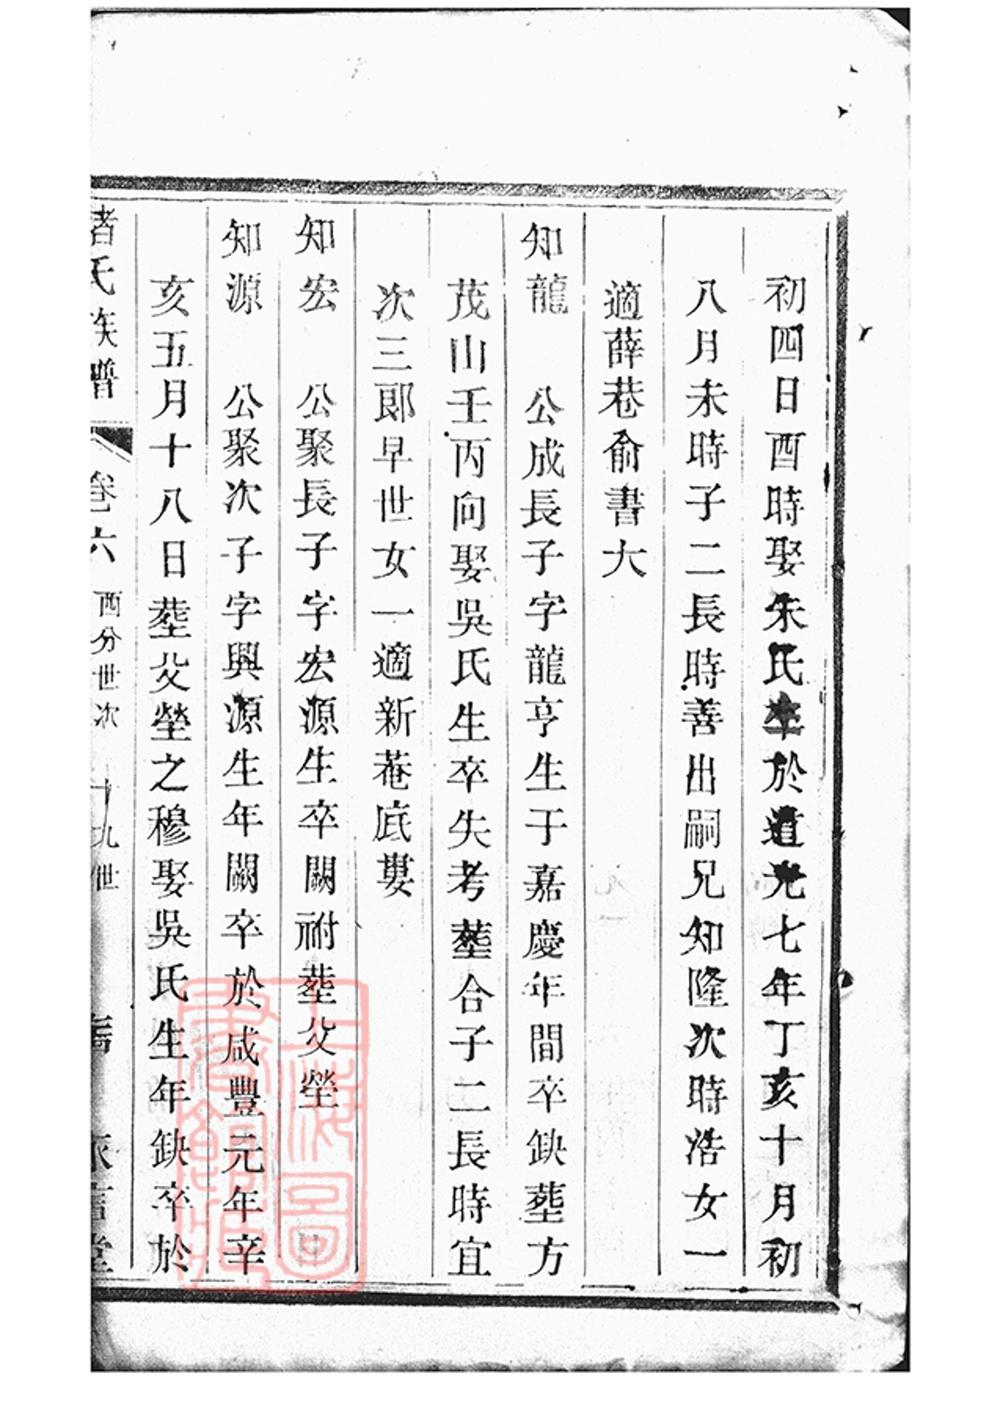 初四日酉時娶朱氏卒於道光七年丁亥十月初
八月未時子二長時善出嗣兄知隆次時浩女一
適薛巷俞書大
知龍　公成長子字龍亨生于嘉慶年間卒缺塟方
茂山壬丙向娶吳氏生卒失考塟合子二長時宜
次三郎早世女一適新菴底婁
知宏　公聚長子字宏源生卒闕祔塟父塋
知源　公聚次子字興源生年闕卒於咸豐元年辛
亥五月十八日塟父塋之穆娶吳氏生年缺卒於
氏族譜　卷六　西分世次　十九世　堂
上海圖書館藏